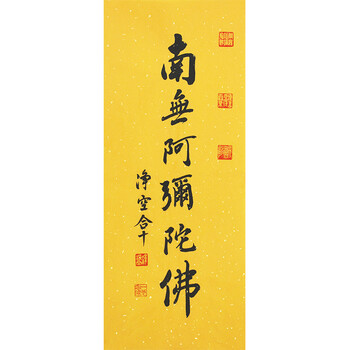 南無阿彌陀佛
淨空合十